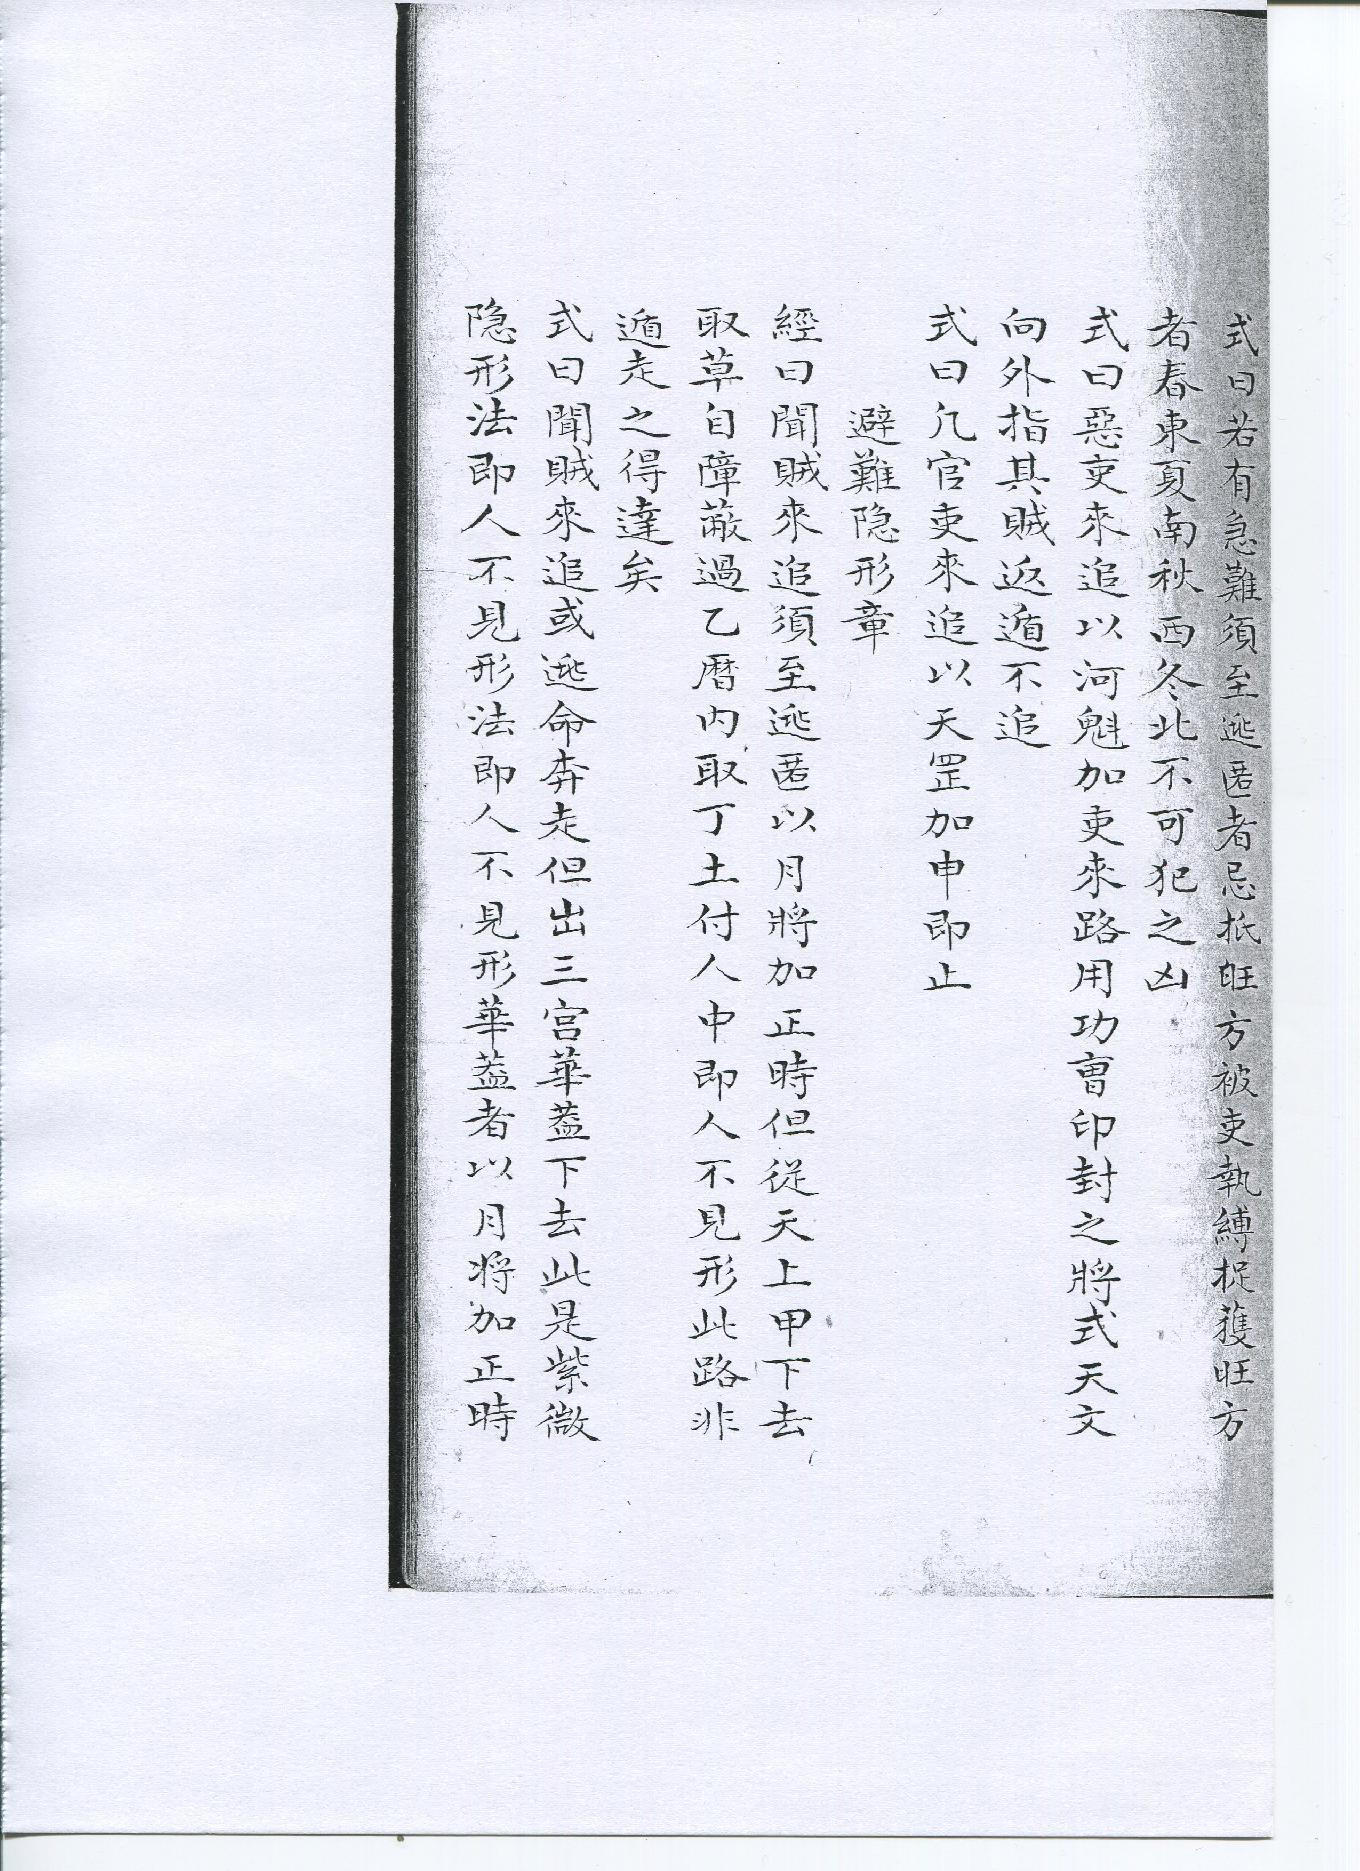 式曰若有急難須至逃匿者忌抵旺方被吏執縛捉獲旺方
者春東夏南秋西冬北不可犯之凶
式曰惡吏來追以河魁加吏來路用功曹印封之將式天文
向外指其賊返遁不追
式曰凢官吏來追以天罡加申即止
避難隐形章
經曰聞賊來追須至逃匿以月將加正時但從天上甲下去
取草自障蔽過乙曆内取丁土付人中即人不見形此路非
遁走之得達矣
式曰聞賊來追或逃命奔走但出三宫華葢下去此是紫微
隐形法即人不見形法即人不見形華葢者以月將加正時